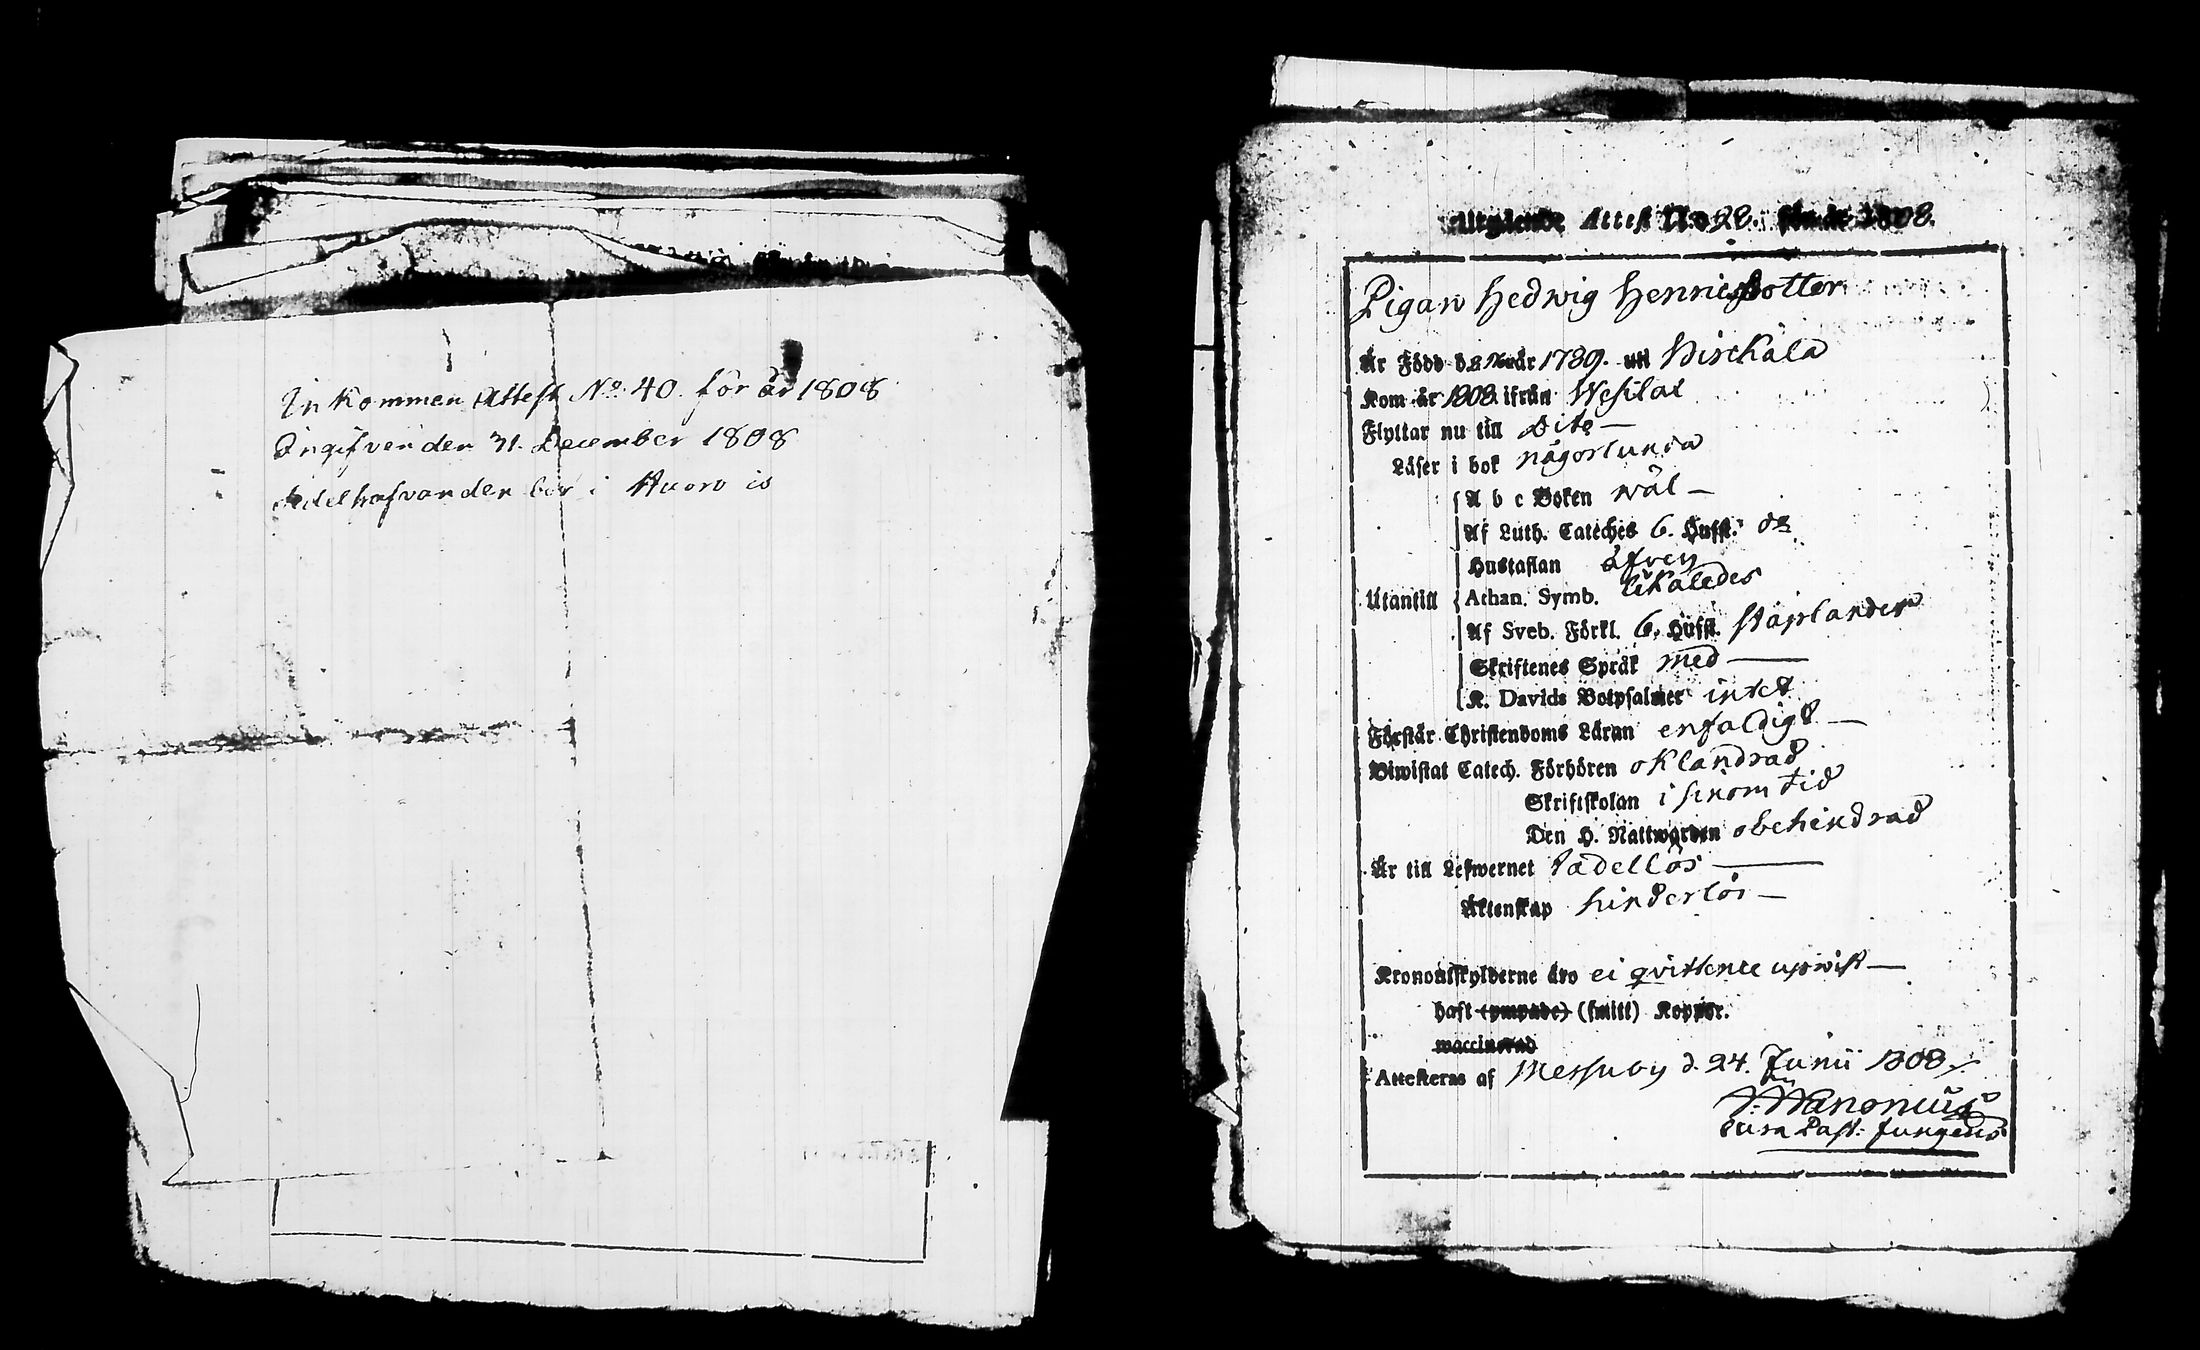 Inkommen Attest No. 40. för år 1808
Ingifven den 31. December 1808
Edelhafvanden bor i
Utgående Attest No 28. för år 1808.
Pigan Hedwig Henricsdotter
Är Född d. 8 Nov år 1789. uti Hirskala
Kom år 1808. ifrån
Flyttar nu till Dito —
Läser i bok någorlunda
A b c Boken wäl —
Af Luth. Cateches 6. Hufst. do
Hustaflan äfven
Utantill Athan. Symb. likaledes
Af Sveb. Förkl. 6. Hufst. staplander
Skriftenes Språk med —
K. Davids Botpsalmer intet
Förstår Christendoms Läran enfaldigt —
Biwistat Catech. Förhören oklandrad
Skriftskolan i sinom tid
Den H. Nattwarden obehindrad
Är till Lefwernet tadellös —
Äktenskap hinderlös —
Kronoutskylderne äro ei qvittence upwist —
haft (ympade) (smitt) Koppor.
waccinerad
Attesteras af Messuby d. 24. Junii 1808.
Cura Past: fungens